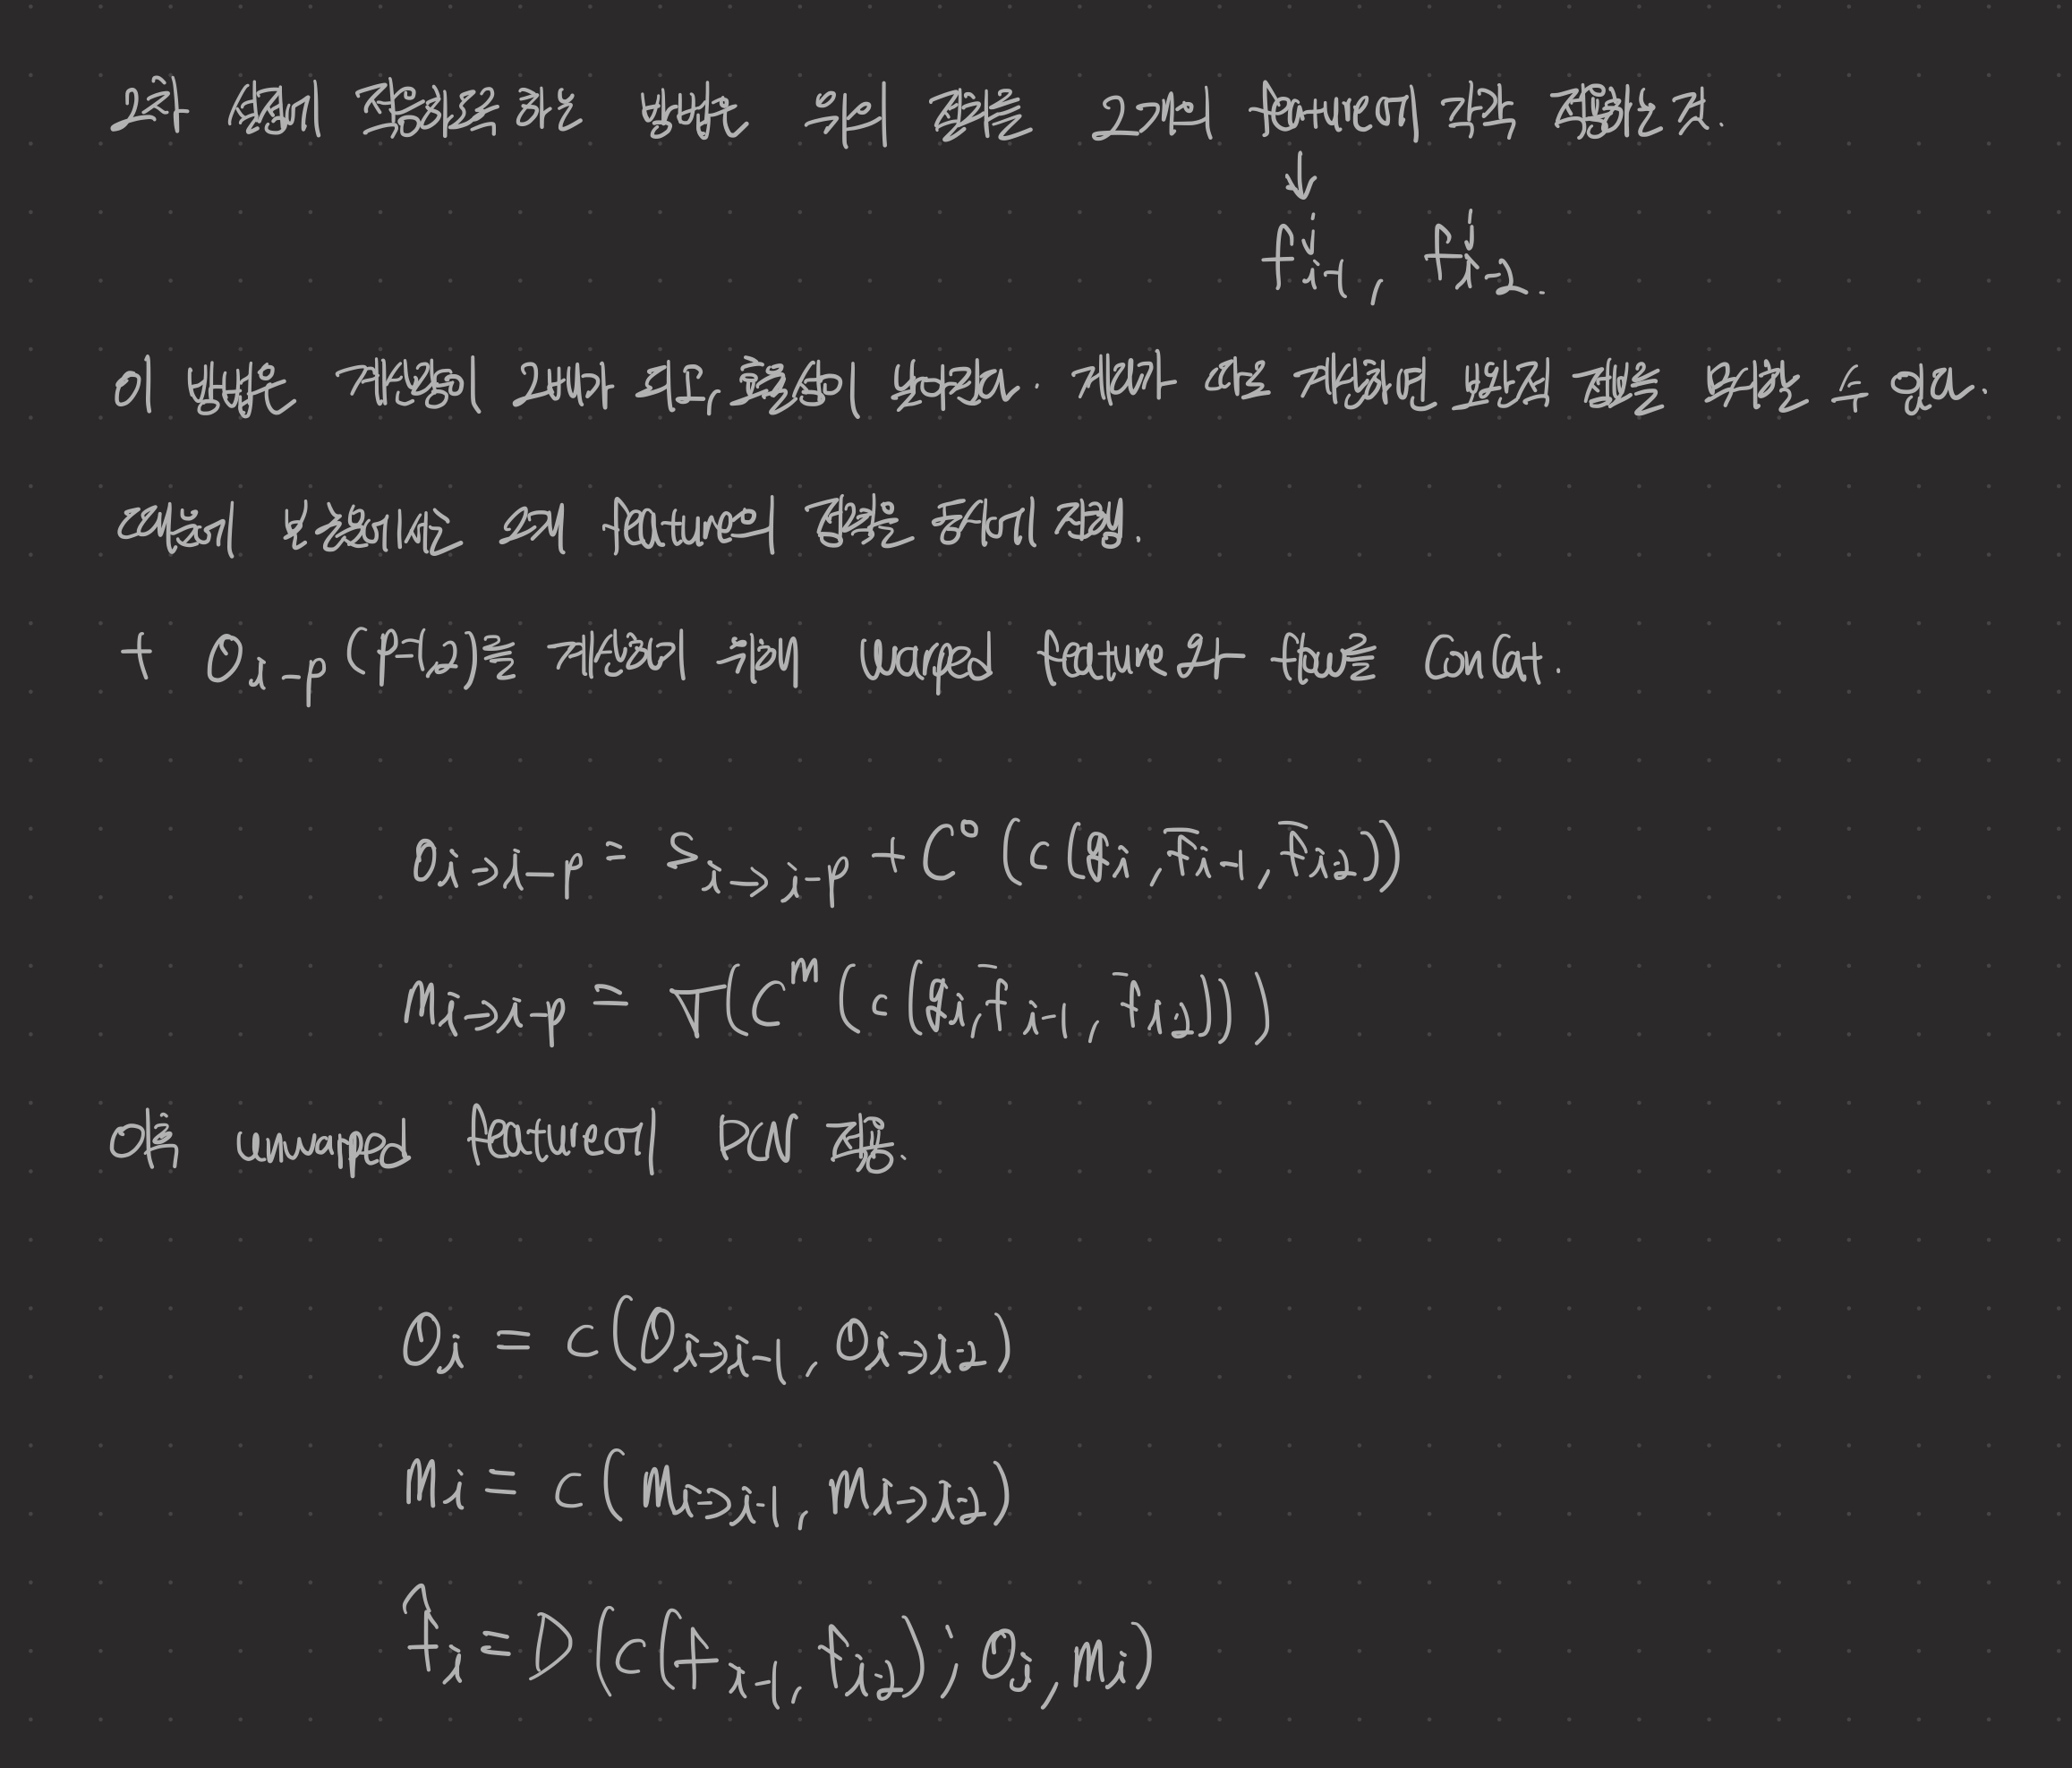 2차 설정에 적용하는 방법은 위 절차를 2개의 feature에 각각 적용하는 것.
↓
f^j_{i-1}, f^j_{i-2}.
이 방법은 계산량이 2배가 되고, 효율이 낮아짐. 게다가 상호 개선해서 보완된 정보를 놓칠 수 있다.
따라서 본 논문에서는 모든 feature의 정보를 통해서 계산.
+ O_{i→i-p} (p=1,2)를 계산하기 위해 warped feature와 flow를 concat.
O_{i→i-p} = S_{i→i-p} + C^o (c(g_i, f̄_{i-1}, f̄_{i-2}))
M_{i→i-p} = σ(C^m (c(g_i, f̄_{i-1}, f̄_{i-2})))
이후 unwarped feature에 DCN 적용.
O_i = c(O_{i→i-1}, O_{i→i-2})
M_i = c(M_{i→i-1}, M_{i→i-2})
f̂_i = D(c(f_{i-1}, f_{i-2}); O_i, M_i)